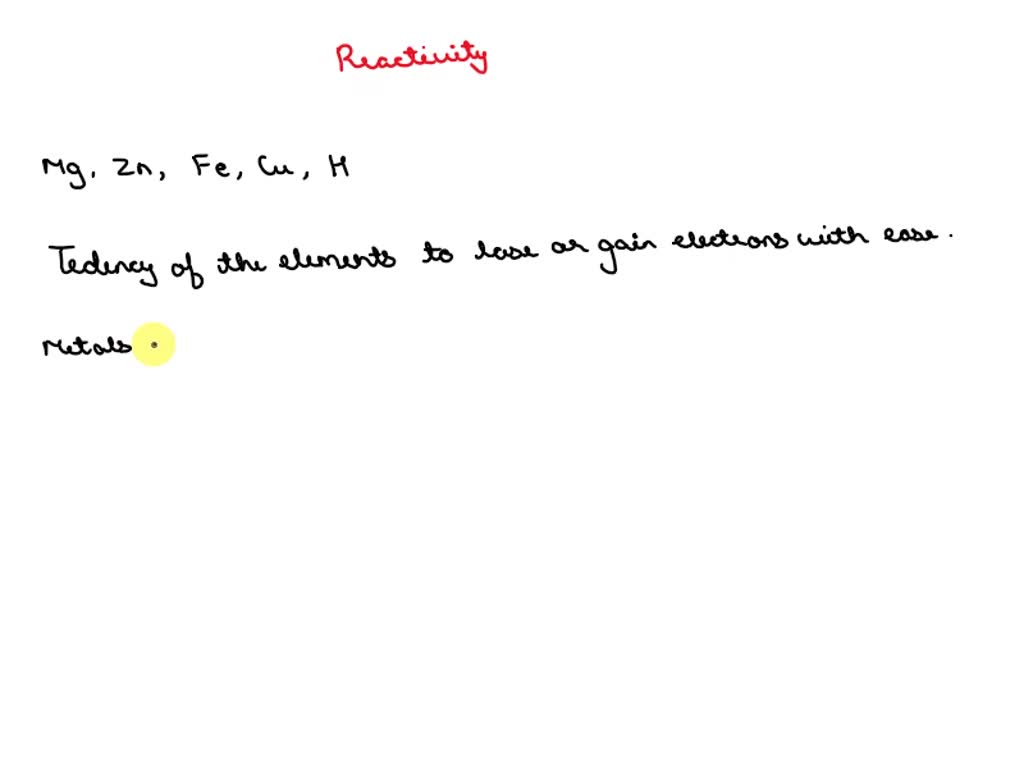 Reactivity
Mg, Zn, Fe, Cu, H
Tedency of the elements to lose or gain electrons with ease.
Metals